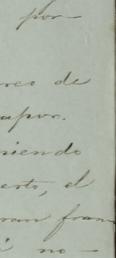 por-
reo de
apor.
niendo
erto, el
ran fran
no-